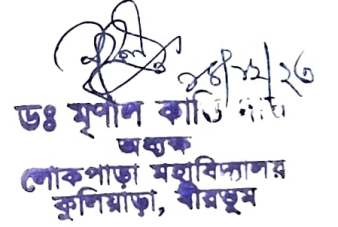 ২৪/১২/২৩
ডঃ মৃণাল কান্তি
অধ্যক্ষ
লোকপাড়া মহাবিদ্যালয়
কুলিয়াড়া, বীরভূম